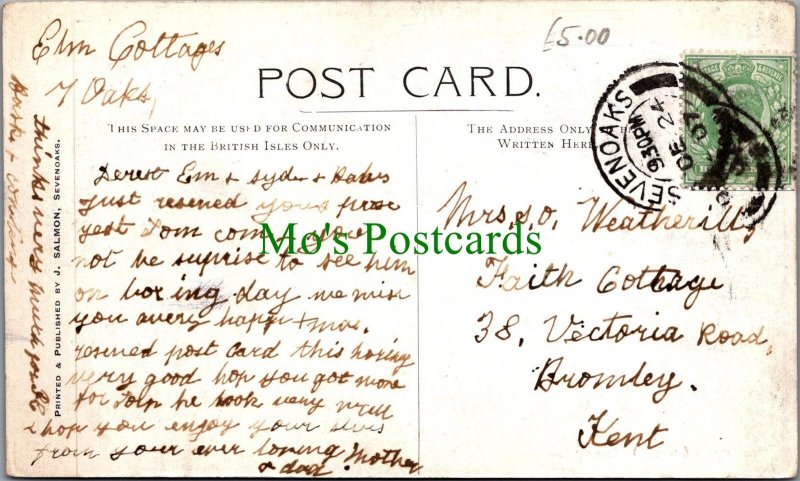 Elm Cottages
7 Oaks,
£5.00
POST CARD.
THIS SPACE MAY BE USED FOR COMMUNICATION
IN THE BRITISH ISLES ONLY.
THE ADDRESS ONLY
WRITTEN HERE
SEVENOAKS
9.30PM
DE 24
07
Derest Em & Syde & Babes
Just reseved your
yest Tom com you
not be suprist to see him
on boxing day we wish
you avery happy Xmas.
reseved post card this
very good hop you got
for he look very well
i hop you enjoy your selves
from your ever loving Mother
& dad
thinks very much for
PRINTED & PUBLISHED BY J. SALMON, SEVENOAKS.
Mo's Postcards
Mrs. Weatherill
Faith Cottage
38, Victoria Road,
Bromley.
Kent